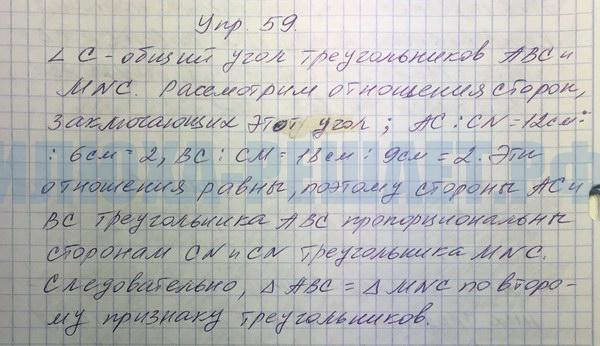 Упр. 59.
∠ C - общий угол треугольников ABC и
MNC. Рассмотрим отношения сторон,
заключающих этот угол; AC : CN = 12см :
: 6см = 2, BC : CM = 18см : 9см = 2. Эти
отношения равны, поэтому стороны AC и
BC треугольника ABC пропорциональны
сторонам CN и CN треугольника MNC.
Следовательно, △ ABC = △ MNC по второ-
му признаку треугольников.